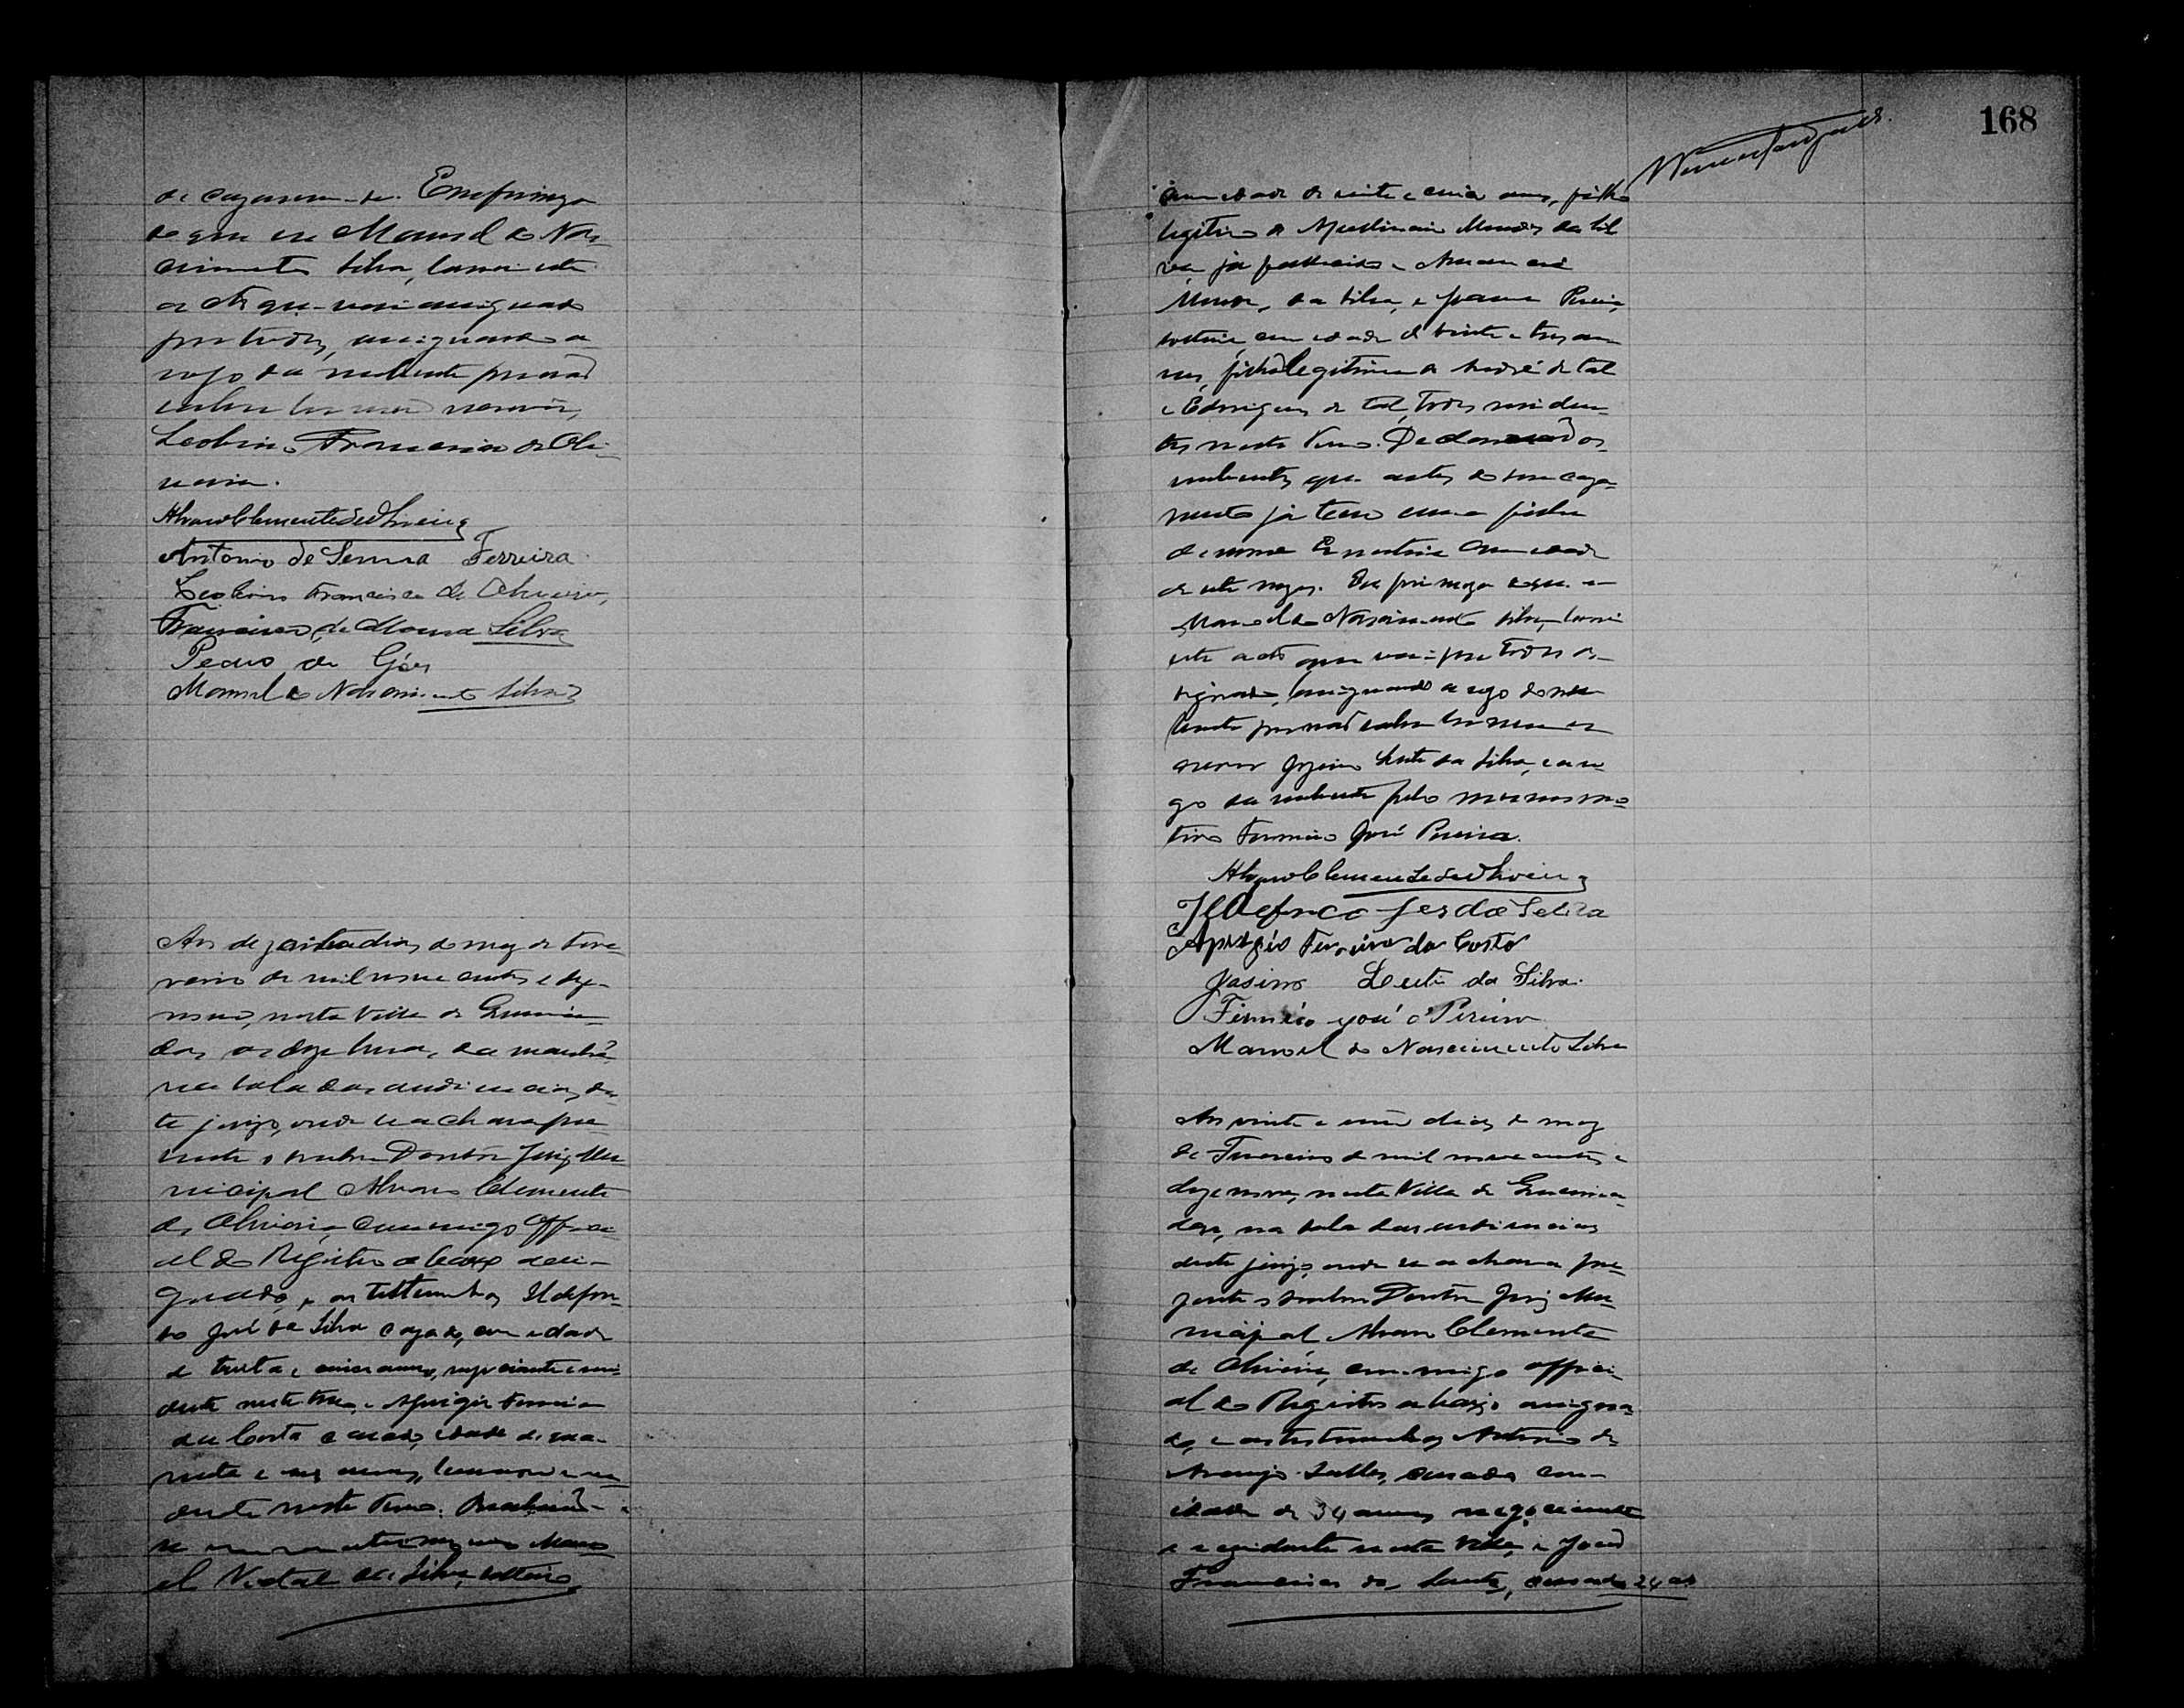 de cazarem-se. Em firmeza
do que eu Manoel do Nas-
cimento Silva, lavrei este
acto que vai assignado
por todos, assignando a
rogo da nubente por não
saber ler nem escrever,
Leobino Francisco de Oli-
veira.
Alvaro Clemente de Oliveira
Antonio de Senna Ferreira
Leobino Francisco de Oliveira,
Francisco de Moura Silva
Pedro de Góes
Manoel do Nascimento Silva
Aos dezoito dias do mez de Feve-
reiro de mil nove centos e deze-
nove, nesta Villa de
as doze horas, da manhã,
na sala das audiencias des-
te juizo, onde se achava pre-
sente o Doutor Juiz Mu-
nicipal Alvaro Clemente
de Oliveira, commigo Offici-
al do Registro abaixo assi-
gnado, e as testemunhas Ildefon-
so José da Silva cazado, com edade
de trinta e cinco annos, negociante e resi-
dente neste termo, e Aprigio Ferreira
da Costa casado, edade de qua-
renta e seis annos, lavrador e resi-
dente neste termo. Receberão-
se em matrimonio Mano-
el Vidal da Silva, solteiro,
168
com edade de vinte e cinco annos, filho
legitimo de Mendes da Sil-
va já fallecido e
Mendes da Silva, e Pereira,
solteira, com edade de vinte e tres an-
nos, filha legitima de André de tal
e Edwiges de tal, todos residen-
tes neste Termo. Declararão os
nubentes que antes de seu caza-
mento já tem uma filha
de nome Ernestina com edade
de sete mezes. Em firmeza do que eu
Manoel do Nascimento Silva, lavrei
este acto que vai por todos as-
signado, assignando a rogo do nu-
bente por não saber ler nem es-
crever Jozino Leite da Silva, e a ro-
go da nubente pelo mesmo mo-
tivo Firmino José Pereira.
Alvaro Clemente de Oliveira
Ildefonço Jose da Silva
Aprigio Ferreira da Costa
Josino Leite da Silva.
Firmino José Pereira
Manoel do Nascimento Silva
Aos vinte e um dias do mez
de Fevereiro de mil nove centos e
dezenove, nesta Villa de
na sala das audiencias
deste juizo, onde se achava pre-
zente o Doutor Juiz Mu-
nicipal Alvaro Clemente
de Oliveira, commigo offici-
al do Registro abaixo assigna-
do, e as testemunhas Antonio de
Araujo Salles, casado com
idade de 34 annos negociante
e rezidente nesta Villa, e João
Francisco dos Santos, casado 24 an